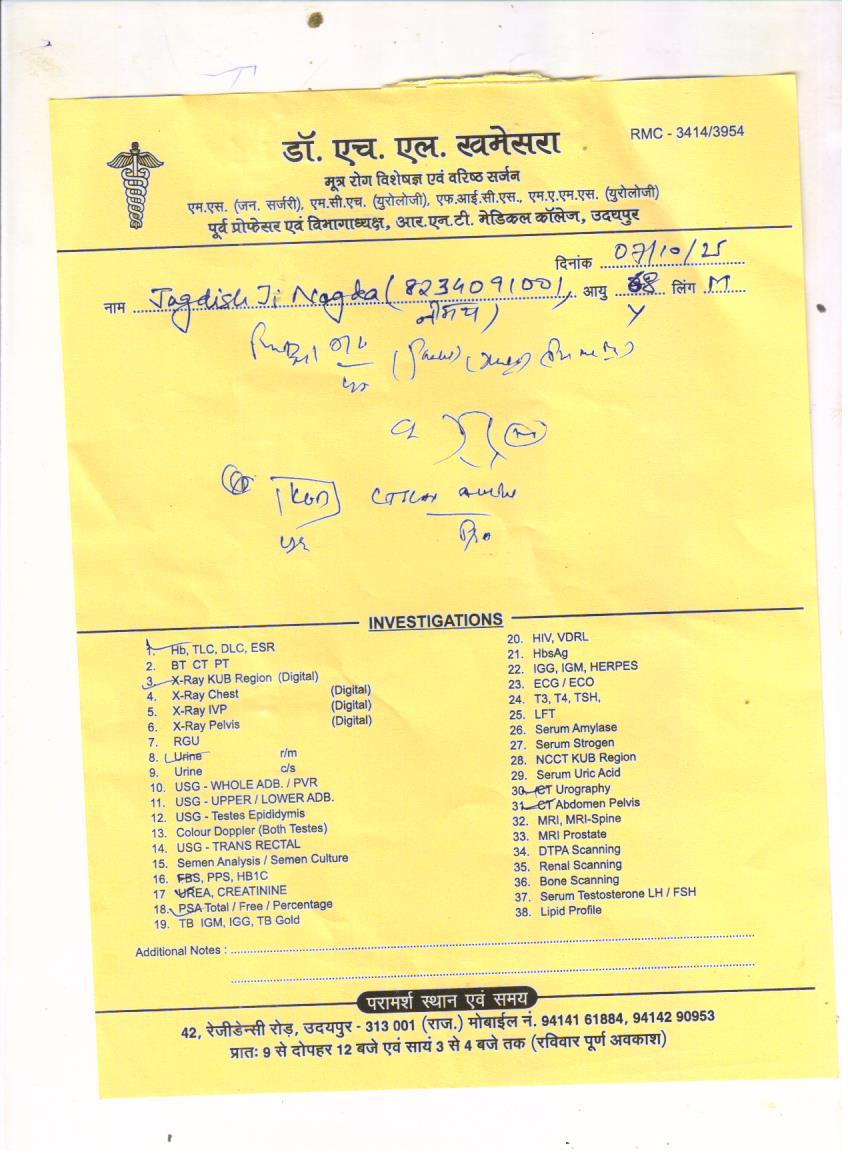 डॉ. एच. एल. खमेसरा
RMC - 3414/3954
मूत्र रोग विशेषज्ञ एवं वरिष्ठ सर्जन
एम.एस. (जन. सर्जरी), एम.सी.एच. (युरोलोजी), एफ.आई.सी.एस., एम.ए.एम.एस. (युरोलोजी)
पूर्व प्रोफेसर एवं विभागाध्यक्ष, आर.एन.टी. मेडिकल कॉलेज, उदयपुर
दिनांक 07/10/25
नाम Jagdish Ji Nagda (8234091001) आयु 68 लिंग M
नीमच) Y
INVESTIGATIONS
1. Hb, TLC, DLC, ESR
2. BT CT PT
3. X-Ray KUB Region (Digital)
4. X-Ray Chest (Digital)
5. X-Ray IVP (Digital)
6. X-Ray Pelvis (Digital)
7. RGU
8. Urine r/m
9. Urine c/s
10. USG - WHOLE ADB. / PVR
11. USG - UPPER / LOWER ADB.
12. USG - Testes Epididymis
13. Colour Doppler (Both Testes)
14. USG - TRANS RECTAL
15. Semen Analysis / Semen Culture
16. FBS, PPS, HB1C
17 UREA, CREATININE
18. PSA Total / Free / Percentage
19. TB IGM, IGG, TB Gold
20. HIV, VDRL
21. HbsAg
22. IGG, IGM, HERPES
23. ECG / ECO
24. T3, T4, TSH,
25. LFT
26. Serum Amylase
27. Serum Strogen
28. NCCT KUB Region
29. Serum Uric Acid
30. CT Urography
31. CT Abdomen Pelvis
32. MRI, MRI-Spine
33. MRI Prostate
34. DTPA Scanning
35. Renal Scanning
36. Bone Scanning
37. Serum Testosterone LH / FSH
38. Lipid Profile
Additional Notes :
परामर्श स्थान एवं समय
42, रेजीडेन्सी रोड़, उदयपुर - 313 001 (राज.) मोबाईल नं. 94141 61884, 94142 90953
प्रातः 9 से दोपहर 12 बजे एवं सायं 3 से 4 बजे तक (रविवार पूर्ण अवकाश)